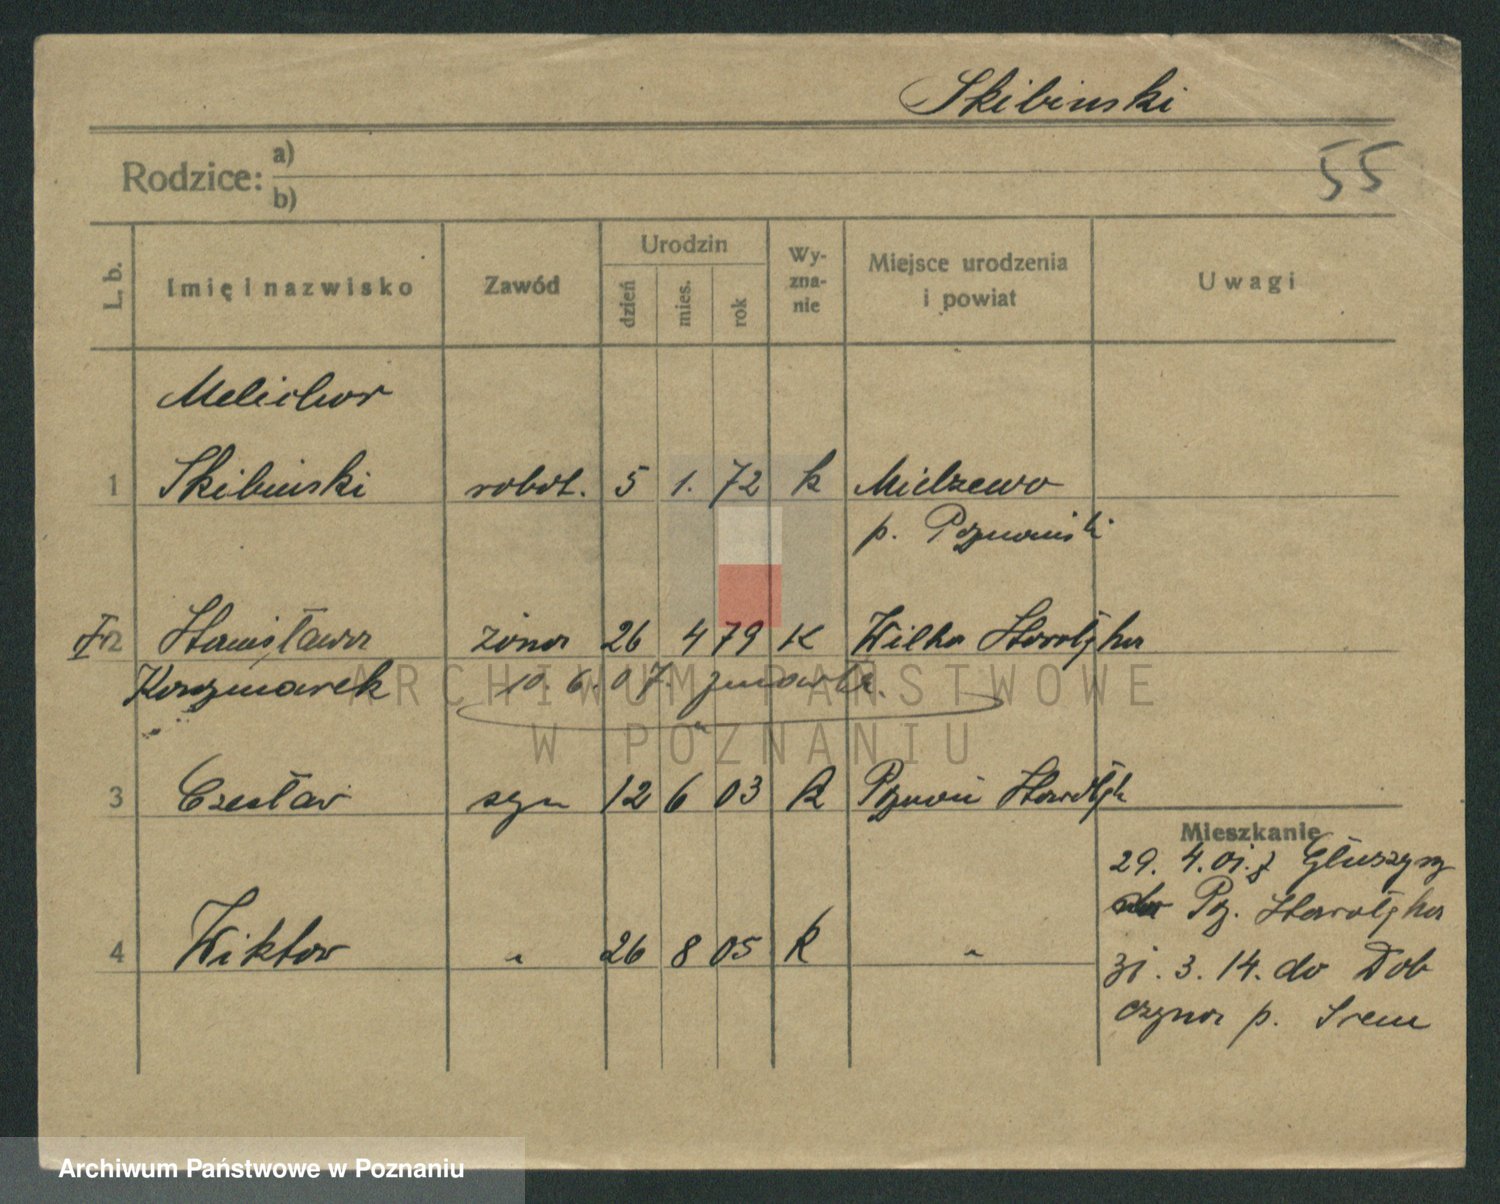 Skibinski
55
Rodzice: a)
b)
L. b. Imię i nazwisko Zawód Urodzin dzień mies. rok Wy-zna-nie Miejsce urodzenia i powiat Uwagi
Melichor
1 Skibinski robot. 5 1. 72 k Mielzewo
p. Poznański
I 2 Stanisława żona 26 4 79 K Wilka Starołęka
Kaczmarek 10. 6. 07. zmarła.
3 Czesław syn 12 6 03 k Poznań Starołęk
Mieszkanie
29. 4. 01. z Głuszyny
Poz. Starołęka
4 Wiktor " 26 8 05 k "
31. 3. 14. do Dob
czyna p. Srem
ARCHIWUM PAŃSTWOWE
W POZNANIU
Archiwum Państwowe w Poznaniu